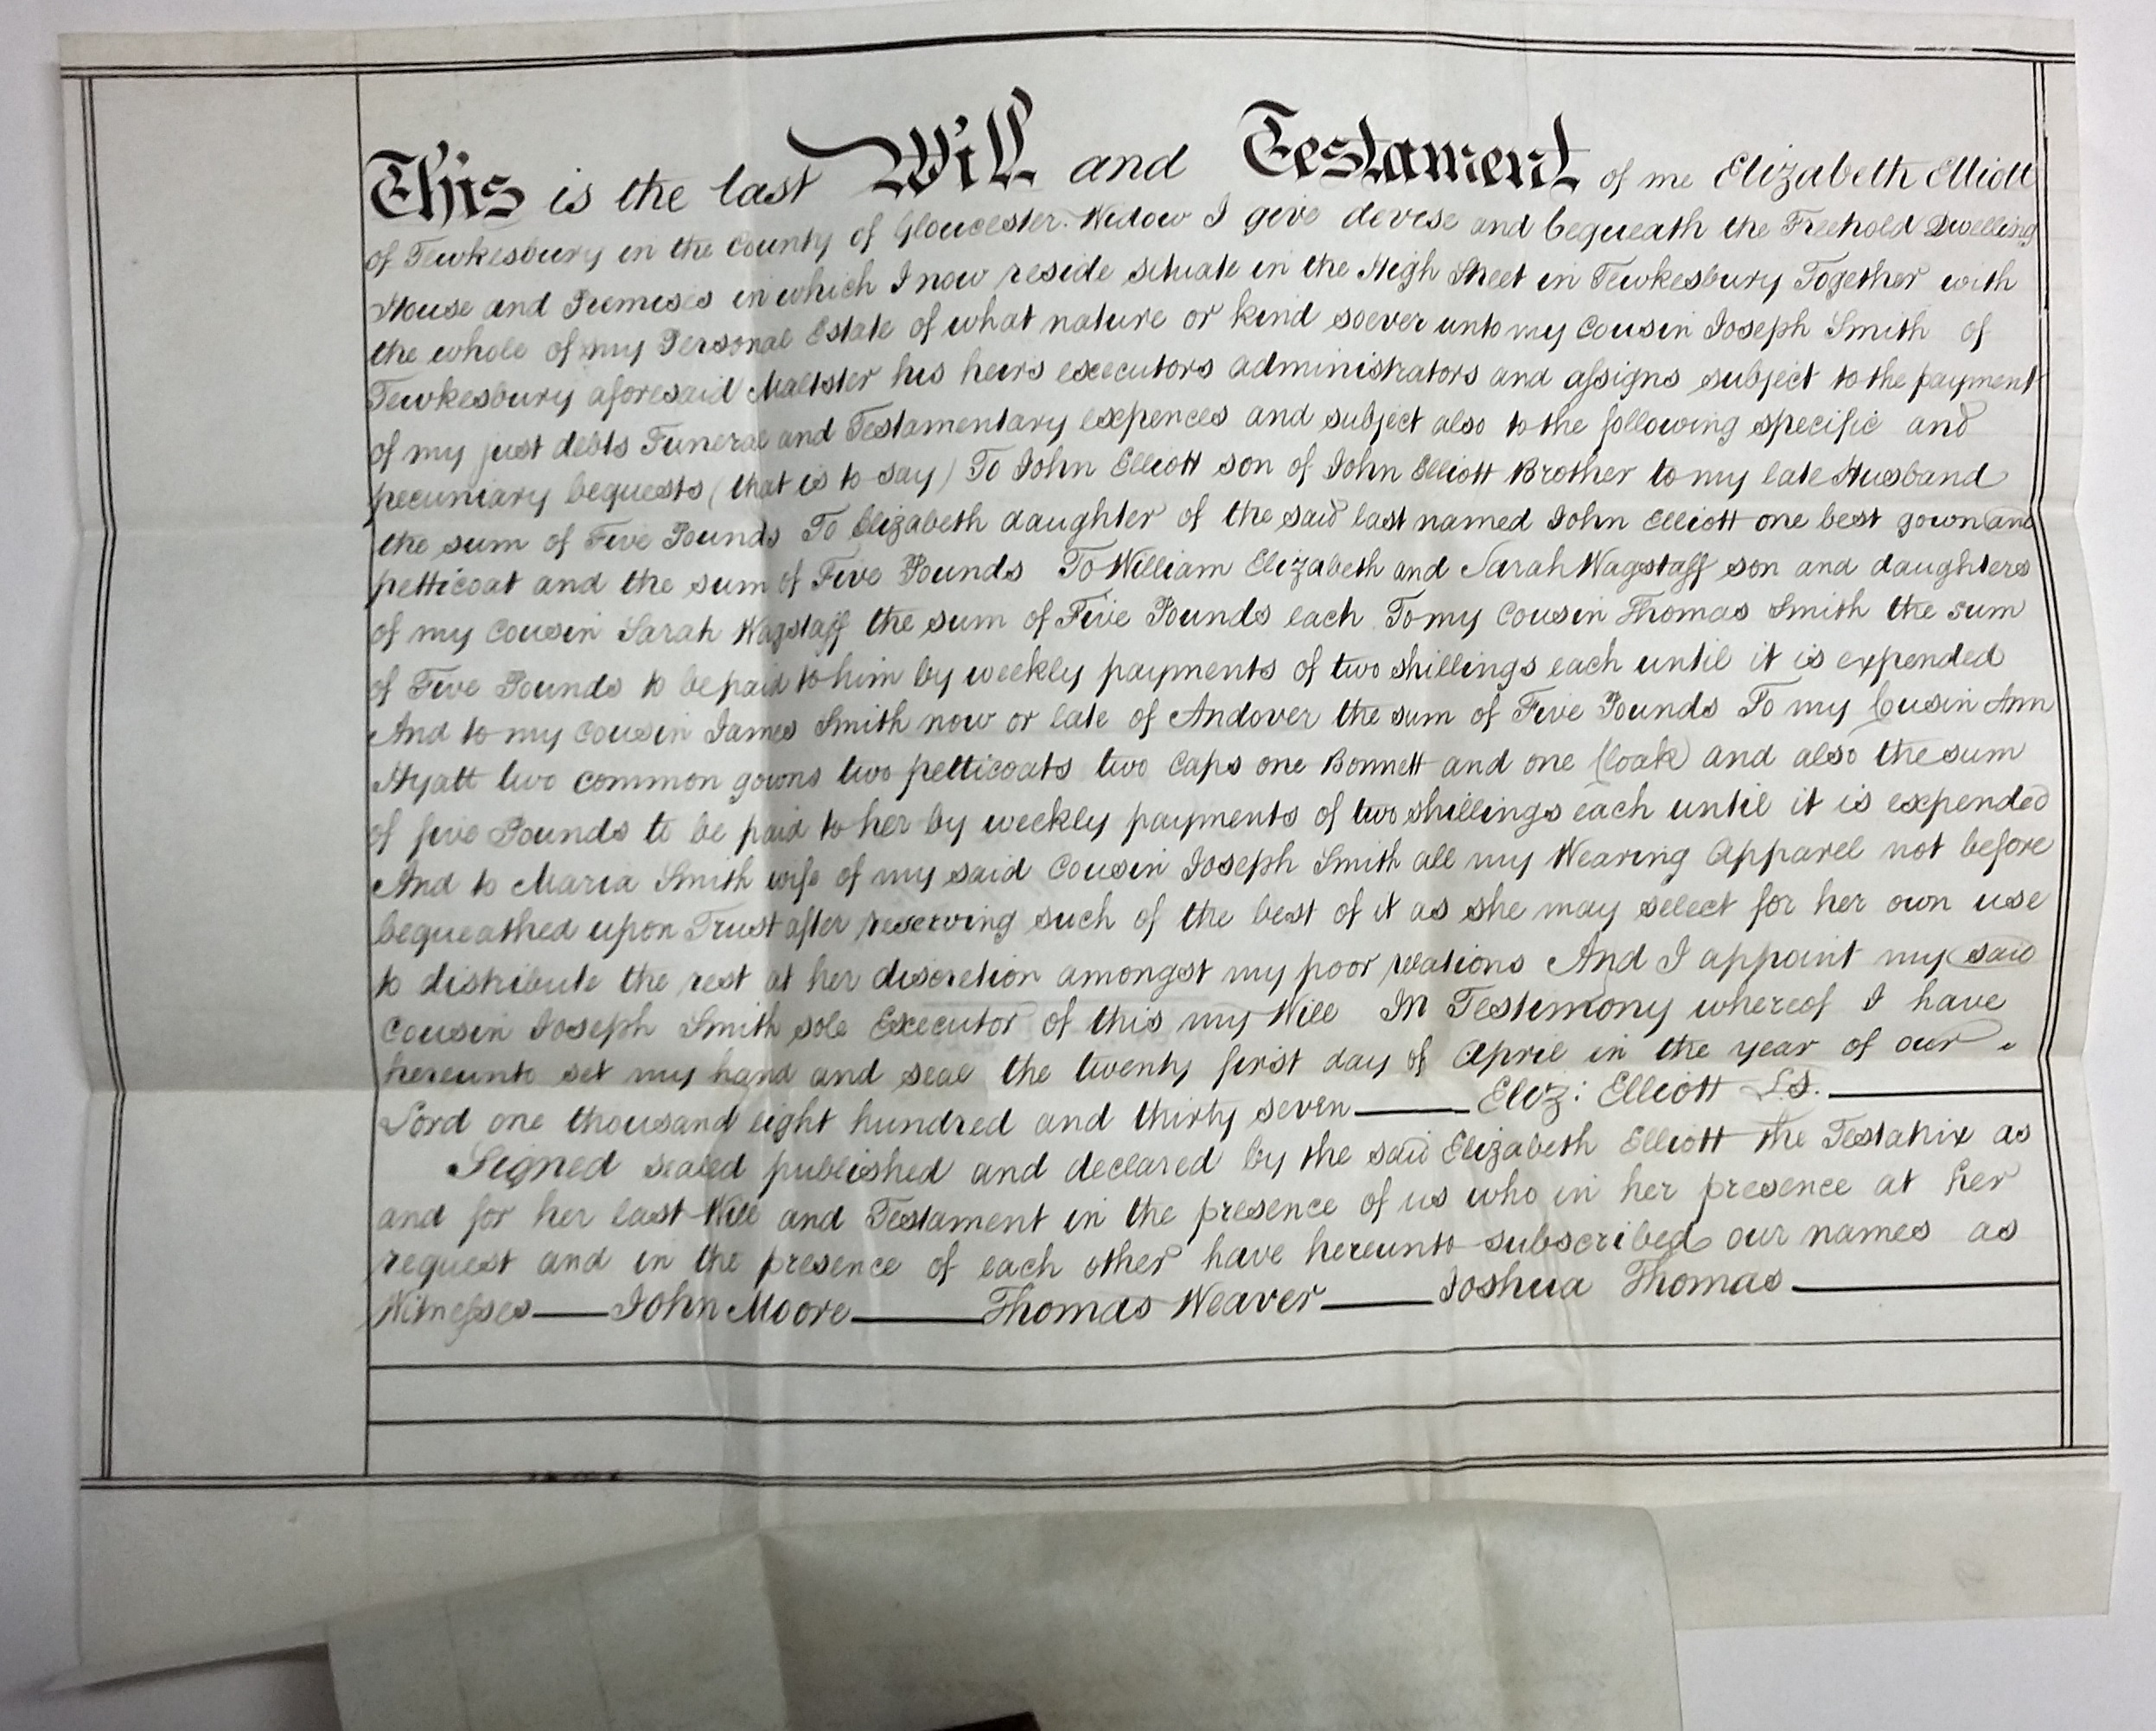 This is the last Will and Testament of me Elizabeth Elliott
of Tewkesbury in the County of Gloucester Widow I give devise and bequeath the Freehold Dwelling
House and Premises in which I now reside situate in the High Street in Tewkesbury Together with
the whole of my Personal Estate of what nature or kind soever unto my Cousin Joseph Smith of
Tewkesbury aforesaid Maltster his heirs executors administrators and assigns subject to the payment
of my just debts Funeral and Testamentary expences and subject also to the following specific and
pecuniary bequests (that is to say) To John Elliott son of John Elliott Brother to my late Husband
the sum of Five Pounds To Elizabeth daughter of the said last named John Elliott one best gown and
petticoat and the sum of Five Pounds To William Elizabeth and Sarah Wagstaff son and daughters
of my Cousin Sarah Wagstaff the sum of Five Pounds each To my Cousin Thomas Smith the sum
of Five Pounds to be paid to him by weekly payments of two shillings each until it is expended
And to my Cousin James Smith now or late of Andover the sum of Five Pounds To my Cousin Ann
Hyatt two common gowns two petticoats two Caps one Bonnett and one Cloak and also the sum
of five Pounds to be paid to her by weekly payments of two shillings each until it is expended
And to Maria Smith wife of my said Cousin Joseph Smith all my Wearing Apparel not before
bequeathed upon Trust after reserving such of the best of it as she may select for her own use
to distribute the rest at her discretion amongst my poor relations And I appoint my said
Cousin Joseph Smith sole Executor of this my Will In Testimony whereof I have
hereunto set my hand and seal the twenty first day of April in the year of our
Lord one thousand eight hundred and thirty seven — Eliz: Elliott L.S. —
Signed sealed published and declared by the said Elizabeth Elliott the Testatrix as
and for her last Will and Testament in the presence of us who in her presence at her
request and in the presence of each other have hereunto subscribed our names as
Witnesses — John Moore — Thomas Weaver — Joshua Thomas —